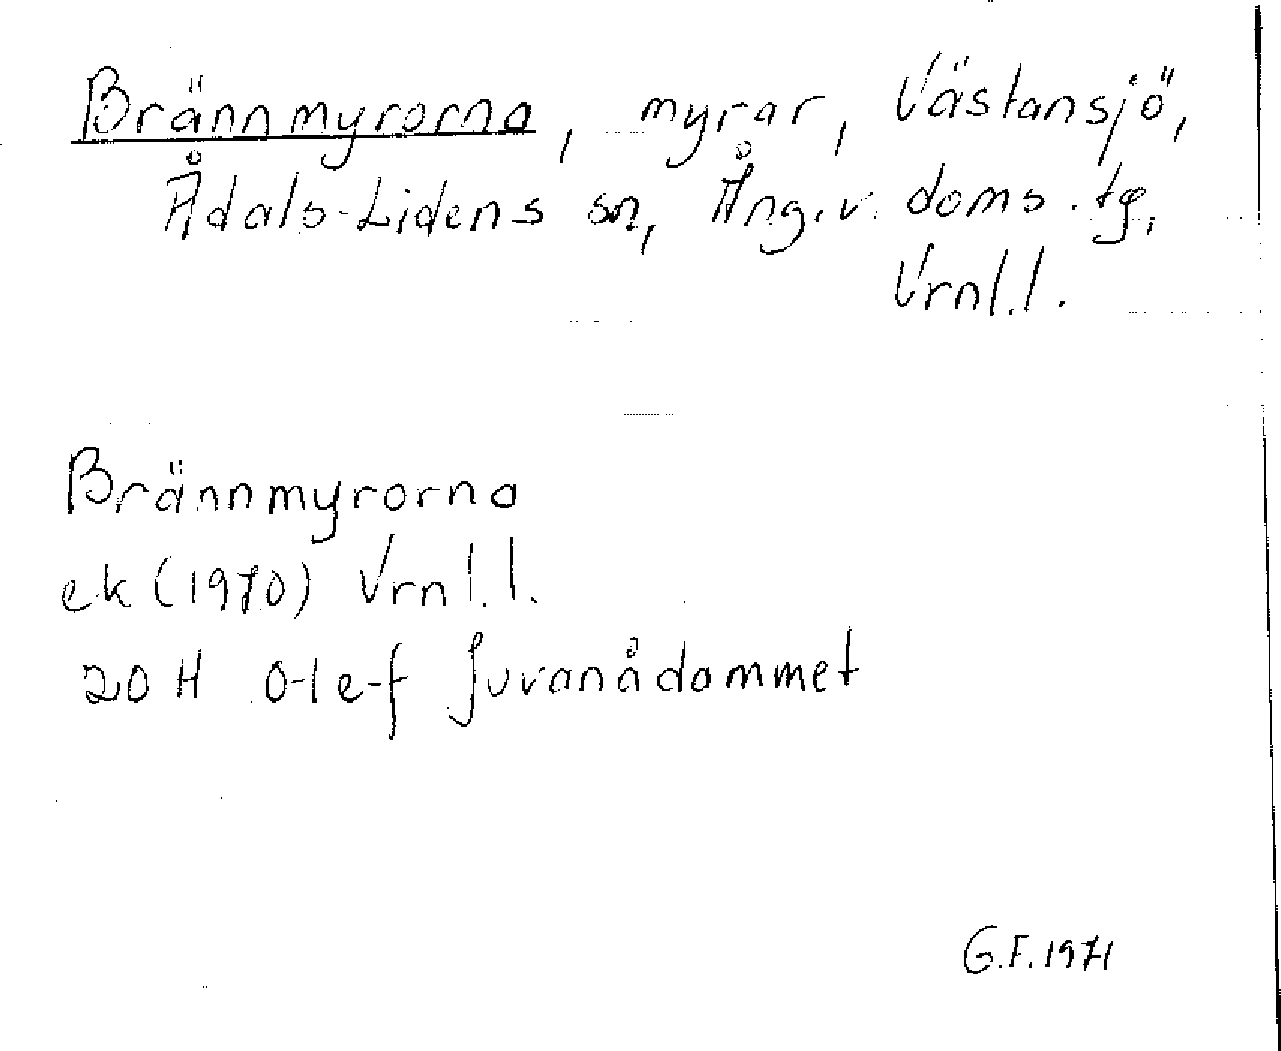 Brännmyrorna, myrar, Västansjö,
Ådals-Lidens sn, Ång.v. doms.tg,
Vrnl.l.
Brännmyrorna
ek (1970) Vrnl.l.
20 H 0-1 e-f Juvanådammet
G.F. 1971